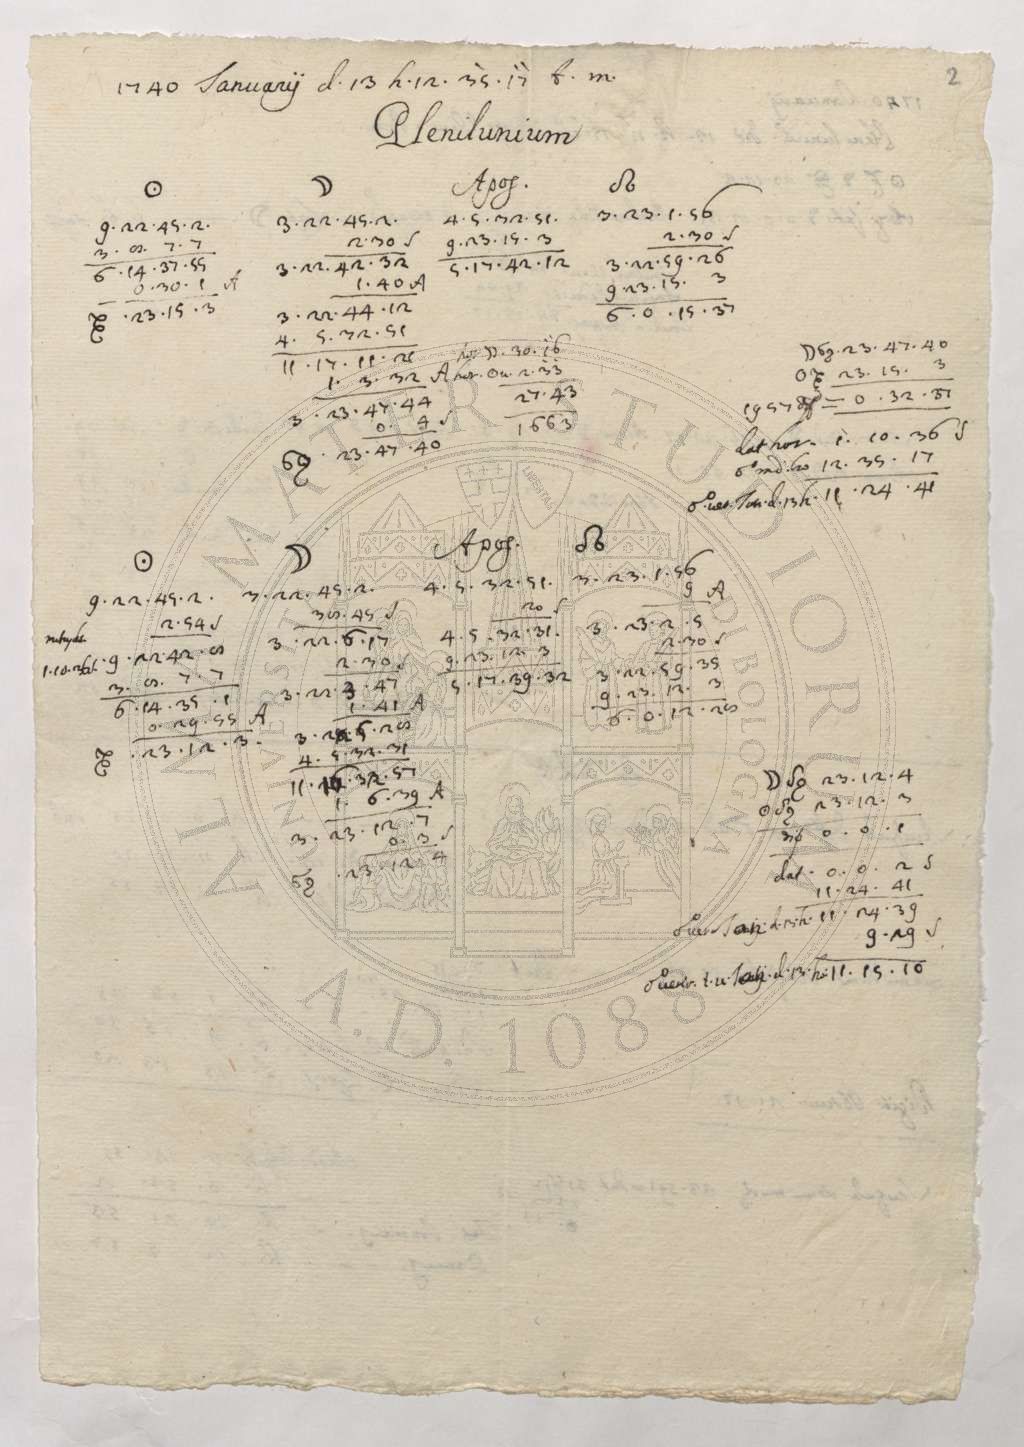 2
1740 Januarij d. 13 h. 12. 35. 17 t. m.
Plenilunium
☉ ☽ Apog. ☊
9. 22. 45. 2. 3. 22. 45. 2. 4. 5. 32. 51. 3. 23. 1. 56
3. 8. 7. 7 2. 30 S 9. 23. 15. 3 2. 30 S
6. 14. 37. 55 3. 22. 42. 32 5. 17. 42. 12 3. 22. 59. 26
0. 30. 1 A 1. 40 A 9. 23. 15. 3
♑ . 23. 15. 3 3. 22. 44. 12 6. 0. 15. 37
4. 5. 32. 51
11. 17. 11. 21 hor. ☽. 30. 16 ☽ 69. 23. 47. 40
1. 3. 32 A hor. ☉ 2. 33 ☉ ♑ 23. 15. 3
3. 23. 47. 44 27. 43 1957 = 0. 32. 37
0. 4 S 1663
69 . 23. 47. 40 dat hor. 1. 10. 36 S
12. 35. 17
d. 13 h. 11. 24. 41
☉ ☽ Apog. ☊
9. 22. 45. 2. 3. 22. 45. 2. 4. 5. 32. 51. 3. 23. 1. 56
2. 54 S 38. 45 S 20 S 9 A
9. 22 42. 8 3. 22. 6. 17 4. 5. 32. 31. 3. 23. 2. 5
3. 8. 7. 7 2. 30 S 9. 23. 12. 3 2. 30 S
6. 14. 35. 1 3. 22. 3. 47 5. 17. 39. 32 3. 22. 59. 35
0. 29. 55 A 1. 41 A 9. 23. 12. 3
♑ . 23. 12. 3. 6. 0. 12. 28
4. 5. 32. 31
11. 16. 32. 57
1. 6. 39 A ☽ 69 23. 12. 4
3. 23. 12. 7 ☉ 69 23. 12. 3
0. 3 S 0. 0. 1
69 . 23. 12. 4 dat. 0. 0. 2 S
11. 24. 41
d. 13. h. 11. 24. 39
9. 29 S
d. 13. h. 11. 15. 10
ALMA MATER STUDIORUM
A.D. 1088
LIBERTAS